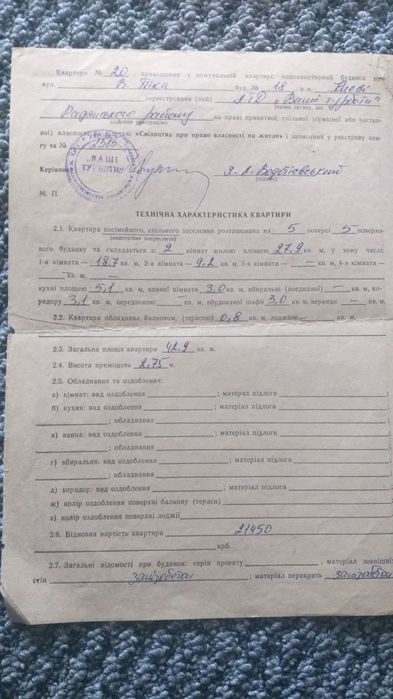 Квартира № 20, приміщення у комунальній квартирі, одноквартирний будинок по
вул. В. Піка буд. № 18 в м. Києві
зареєстрована (ний) ЛТД „Ваші турботи"
Радянського району на праві приватної, спільної (сумісної або частко-
вої) власності на підставі «Свідоцтва про право власності на житло» і записаний у реєстрову кни-
гу за № 2385
„ВАШІ ТУРБОТИ"
Керівник
М. П.
ТЕХНІЧНА ХАРАКТЕРИСТИКА КВАРТИРИ
2.1. Квартира посімейного, спільного заселення розташована на 5 поверсі 5 поверхо-
(непотрібне викреслити)
вого будинку та складається з: 2 кімнат жилою площею 27,9 кв. м, у тому числі:
1-а кімната — 18,7 кв. м, 2-а кімната — 9,2 кв. м, 3-я кімната — кв. м, 4-а кімната —
— кв. м,
кухні площею 5,1 кв. м, ванної кімнати 3,0 кв. м, вбиральні (поєднаної) — кв. м, ко-
ридору 3,1 кв. м, передпокою — кв. м, вбудованої шафи 3,0 кв. м, веранди — кв. м.
2.2. Квартира обладнана балконом, (терасою) 0,8 кв. м, лоджією — кв. м.
2.3. Загальна площа квартири 42,9 кв. м.
2.4. Висота приміщень 2,75 м.
2.5. Обладнання та оздоблення:
а) кімнат: вид оздоблення ; матеріал підлоги ;
б) кухня: вид оздоблення ; матеріал підлоги
; обладнання ;
в) ванна: вид оздоблення ; матеріал підлоги
; обладнання ;
г) вбиральня: вид оздоблення ; матеріал підлоги
; обладнання ;
д) коридор: вид оздоблення ; матеріал підлоги ;
ж) колір оздоблення поверхні балкону (тераси) ;
з) колір оздоблення поверхні лоджії
2.6. Відновна вартість квартири 21450
крб.
2.7. Загальні відомості про будинок: серія проекту , матеріал зовнішніх
стін залізобетон ; матеріал перекрить залізобетон